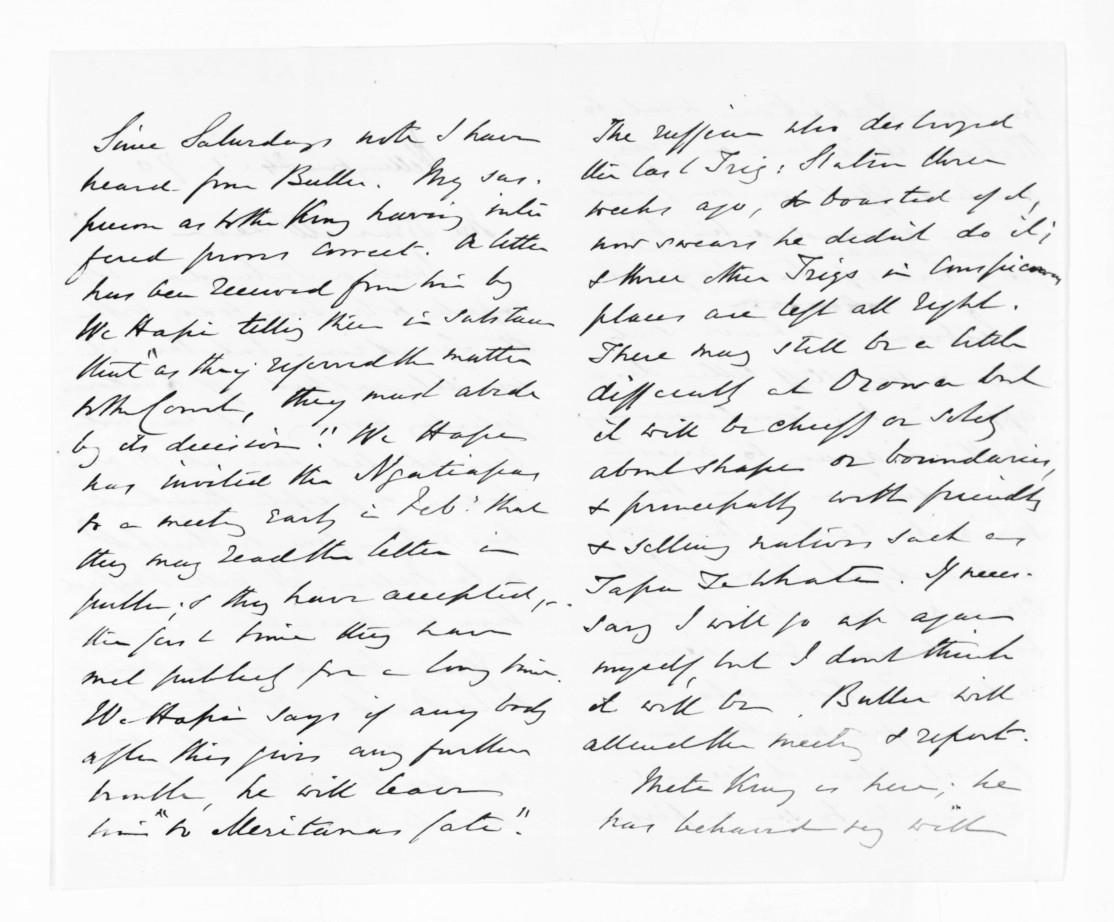 Since Saturdays note I have
heard from Buller. My sus-
picion as to the King having inter
fered proves correct. A letter
has been received from him by
We Hapi telling them in substance
that "as they referred the matter
to the Court, they must abide
by its decision". We Hapi
has invited the Ngatiapas
to a meeting early in Feb: that
they may read the letter in
public; & they have accepted, -
the first time they have
met publicly for a long time.
We Hapi says if any body
after this gives any further
trouble, he will leave
him "to Meritanas fate".
The ruffian who destroyed
the last Trig: Station three
weeks ago, & boasted of it,
now swears he didnt do it;
& three other Trigs in conspicuous
places are left all right.
There may still be a little
difficulty at Oroua but
it will be chiefly or solely
about shape or boundaries,
& principally with friendly
& selling natives such as
Tapa Te Whata. If neces-
sary I will go up again
myself, but I dont think
it will be. Buller will
attend the meeting & report.
Mete King is here; he
has behaved very well